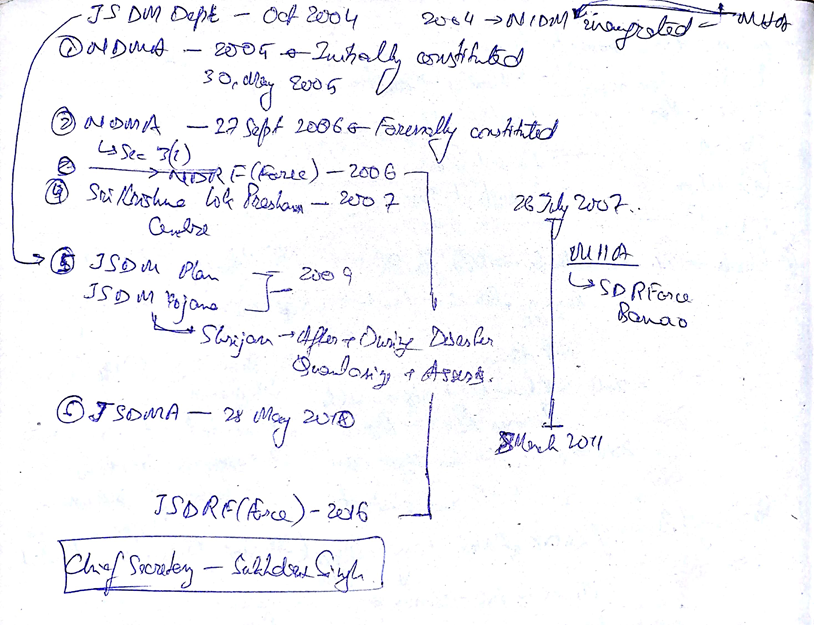 JSDM Dept - Oct 2004
2004 → NIDM inaugrated - MHA
① NDMA - 2005 Initially constituted
30, May 2005
② NDMA - 27 Sept 2006 Foremally constituted
↳ Sec 3(1)
→ NDRF (Force) - 2006
④ Sri Krishna Lok Prashan - 2007
Centre
26 July 2007.
MHA
↳ SDRForce
Banao
⑤ JSDM Plan
JSDM Yojana
- 2009
→ After + During Disaster
+
JSDMA - 28 May
March 2011
JSDRF (Force) - 2016
Chief Secretary - Singh